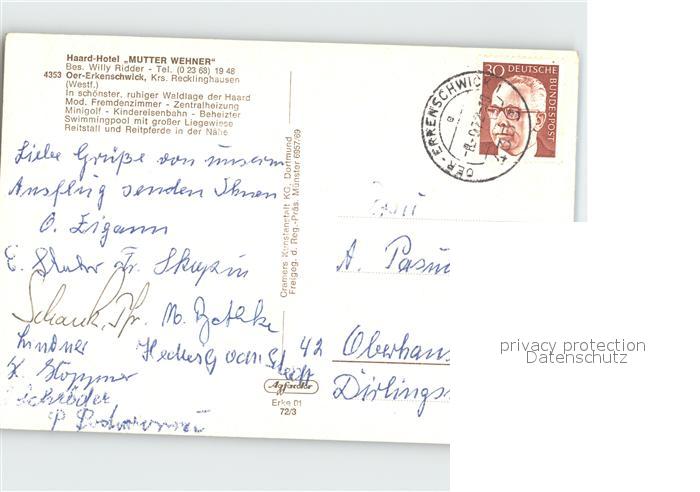 Haard-Hotel „MUTTER WEHNER"
Bes. Willy Ridder - Tel. (0 23 68) 19 48
4353 Oer-Erkenschwick, Krs. Recklinghausen
(Westf.)
In schönster, ruhiger Waldlage der Haard
Mod. Fremdenzimmer - Zentralheizung
Minigolf - Kindereisenbahn - Beheizter
Swimmingpool mit großer Liegewiese
Reitstall und Reitpferde in der Nähe
Liebe Grüße von unserm
Ausflug senden Ihnen
O. Zigann
E. Fr. Skupin
Schank, M. Bethke
Lindner
Schröder
Cramers Kunstanstalt KG, Dortmund
Freigeg. d. Reg.-Präs. Münster 6957/69
30 DEUTSCHE
BUNDESPOST
OER-ERKENSCHWICK
Frau
A.
42 Oberhaus
Dirlings
Agfacolor
Erke 01
72/3
privacy protection
Datenschutz